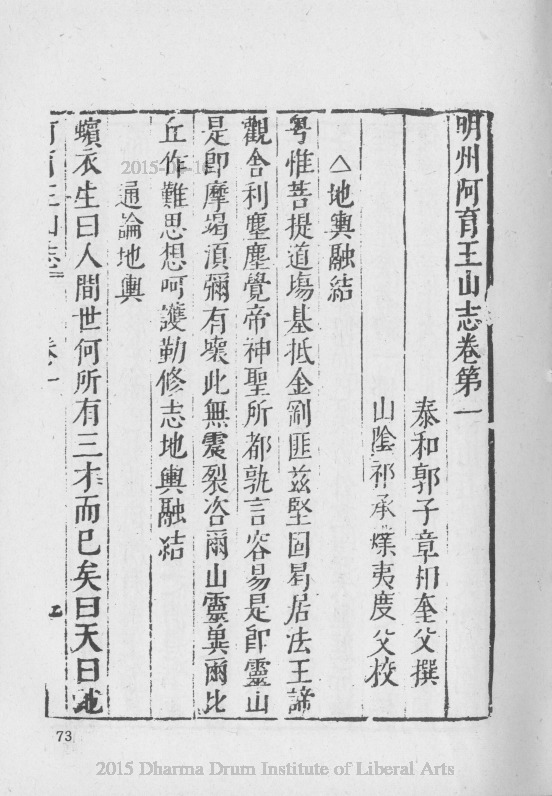 明州阿育王山志卷第一
泰和郭子章相奎父撰
山陰祁承㸁夷度父校
△地輿融結
粵惟菩提道場基抵金剛匪茲堅固曷居法王諦
觀舍利塵塵覺帝神聖所都孰言容易是即靈山
是即摩竭須彌有壞此無震裂咨爾山靈冀爾比
丘作難思想呵護勤修志地輿融結
通論地輿
蠙衣生曰人間世何所有三才而已矣曰天曰地
阿育王山志 卷一
73
2015 Dharma Drum Institute of Liberal Arts